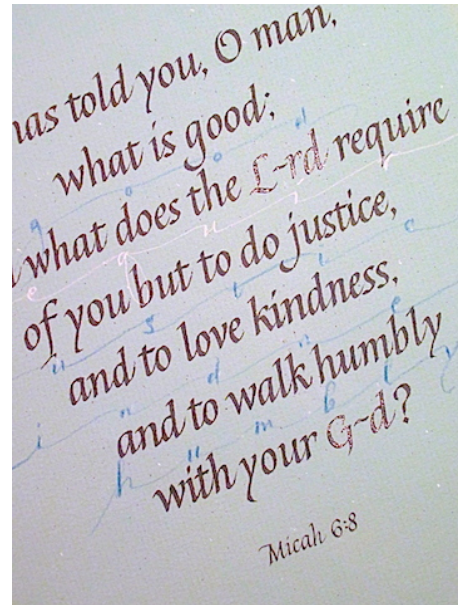 has told you, O man,
what is good;
g o o d
what does the L-rd require
of you but to do justice,
and to love kindness,
and to walk humbly
h u m b l y
with your G-d?
Micah 6:8